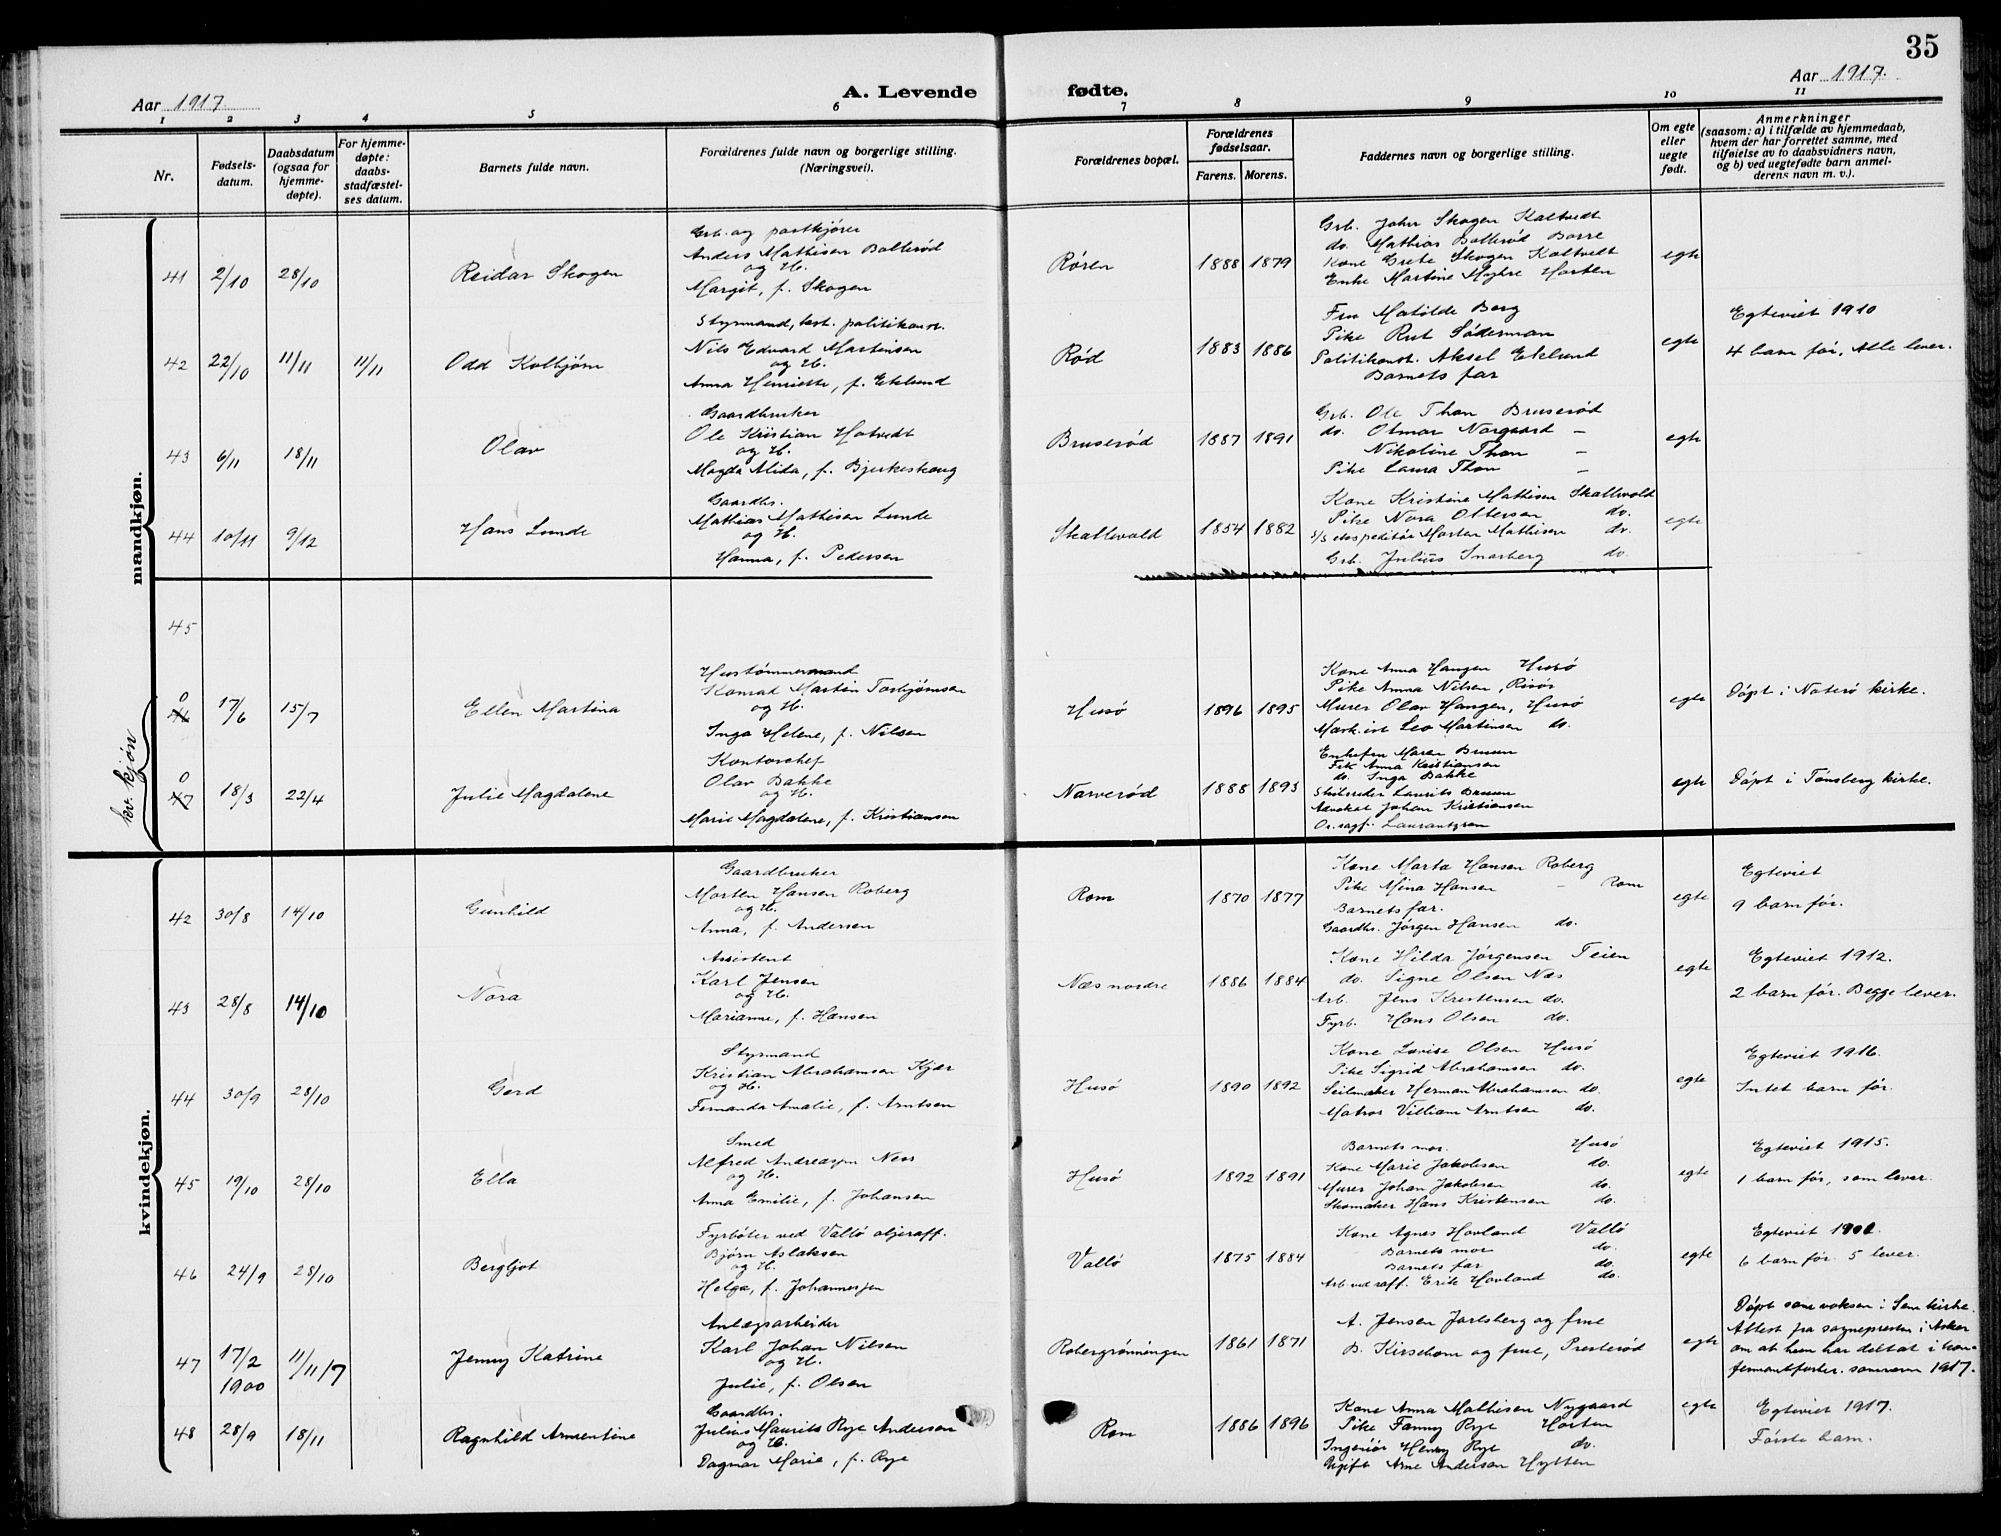 35
Aar 1917 A. Levende fødte. Aar 1917.
1 2 3 4 5 6 7 8 9 10 11
Nr.
Fødsels-
datum.
Daabsdatum
(ogsaa for
hjemme-
døpte).
For hjemme-
døpte:
daabs-
stadfæstel-
ses datum.
Barnets fulde navn.
Forældrenes fulde navn og borgerlige stilling.
(Næringsvei).
Forældrenes bopæl.
Forældrenes
fødselsaar.
Farens. Morens.
Faddernes navn og borgerlige stilling.
Om egte
eller
uegte
født.
Anmerkninger
(saasom: a) i tilfælde av hjemmedaab,
hvem der har forrettet samme, med
tilføielse av to daabsvidners navn,
og b) ved uegtefødte barn anmel-
derens navn m. v.).
mandkjøn.
41 2/10 28/10 Reidar Skogen
Grb. og postkjører
Anders Mathisen Bollerød
og H.
Margit, f. Skogen
Røren 1888 1879
Grb. John Skogen Kaltvedt
do. Mathias Bollerød Borre
Kone Grete Skogen Kaltvedt
Enke Martine Myhre Horten
egte
42 22/10 11/11 11/11 Odd Kolbjørn
Styrmand, kst. politikonst.
Nils Edvard Martinsen
og H.
Anna Henriette, f. Eklund
Rød 1883 1886
Fru Matilde Berg
Pike Rut Søderman
Politikonst. Aksel Eklund
Barnets far
egte
Egteviet 1910
4 barn før, Alle lever.
43 6/11 18/11 Olav
Gaardbruker
Ole Kristian Hotvedt
og H.
Magda Alida, f. Bjerkeskaug
Bruserød 1887 1891
Grb. Ole Thon Bruserød
do. Otmar Norgaard –
Nikoline Thon –
Pike Laura Thon –
egte
44 10/11 9/12 Hans Lunde
Gaardbr.
Mathias Mathisen Lunde
og H.
Hanna, f. Pedersen
Skallevold 1854 1882
Kone Kristine Mathisen Skallevold
Pike Nora Ottersen do.
s/s ekspeditør Morten Mathisen do.
Grb. Julius Snarberg do.
egte
45
kv. kjøn
0
46 17/6 15/7 Ellen Martina
Hustømmermand
Konrad Martin Torbjørnsen
og H.
Inga Helene, f. Nilsen
Husø 1896 1895
Kone Anna Haugen Husø
Pike Anna Nilsen, Risør
Murer Olav Haugen, Husø
Mask.ist Leo Martinsen do.
egte
Døpt i Nøterø kirke.
0
47 18/3 22/4 Julie Magdalene
Kontorchef
Olav Bakke
og H.
Marie Magdalene, f. Kristiansen
Narverød 1888 1893
Enkefru Maren Bruun
Frk Anna Kristiansen
do. Inga Bakke
Skibsreder Laurits Bruun
Advokat Johan Kristiansen
O.r.sagf. Laurantzon
egte
Døpt i Tønsberg kirke.
kvindekjøn.
42 30/8 14/10 Gunhild
Gaardbruker
Morten Hansen Roberg
og H.
Anna, f. Andersen
Rom 1870 1877
Kone Marta Hansen Roberg
Pike Mina Hansen – Rom
Barnets far.
Gaardbr. Jørgen Hansen do.
egte
Egteviet
9 barn før.
43 28/8 14/10 Nora
Assistent
Karl Jensen
og H.
Marianne, f. Hansen
Næs nordre 1886 1884
Kone Hilda Jørgensen Teien
do. Signe Olsen Næs
Arb. Jens Krestensen do.
Fyrb. Hans Olsen do.
egte
Egteviet 1912.
2 barn før. Begge lever.
44 30/9 28/10 Gerd
Styrmand
Kristian Abrahamsen Kjær
og H.
Fernanda Amalie, f. Arntsen
Husø 1890 1892
Kone Lovise Olsen Husø
Pike Sigrid Abrahamsen do.
Seilmaker Herman Abrahamsen do.
Matros Villiam Arntsen do.
egte
Egteviet 1916.
Intet barn før.
45 19/10 28/10 Ella
Smed
Alfred Andreassen Ness
og H.
Anna Emilie, f. Johansen
Husø 1892 1891
Barnets mor. Husø
Kone Marie Jakobsen do.
Murer Johan Jakobsen do.
Skomaker Hans Kristensen do.
egte
Egteviet 1915.
1 barn før, som lever.
46 24/9 28/10 Bergljot
Fyrbøter ved Vallø oljeraff.
Bjørn Aslaksen
og H.
Helga, f. Johannessen
Vallø 1875 1884
Kone Agnes Hovland Vallø
Barnets mor do.
Barnets far do.
Arb. ved raff. Erik Hovland do.
egte
Egteviet
6 barn før. 5 lever.
47 17/2 1900 11/11/7 Jenny Katrine
Anlægsarbeider
Karl Johan Nilsen
og H.
Julie, f. Olsen
Robergrønningen 1861 1871
A. Jensen Jarlsberg og frue
B. Kirsebom og frue, Presterød
egte
Døpt som voksen i Sem kirke.
Attest fra sognepresten i Asker
om at hun har deltat i kon-
firmantforber. sommeren 1917.
48 28/9 18/11 Ragnhild Armentine
Gaardbr.
Julius Maurits Rye Andersen
og H.
Dagmar Marie, f. Rye
Rom 1886 1896
Kone Anna Mathisen Nygaard
Pike Fanny Rye Horten
Ingeniør Henry Rye do.
Ugift Arne Anderson Hytten
egte
Egteviet 1917.
Første barn.